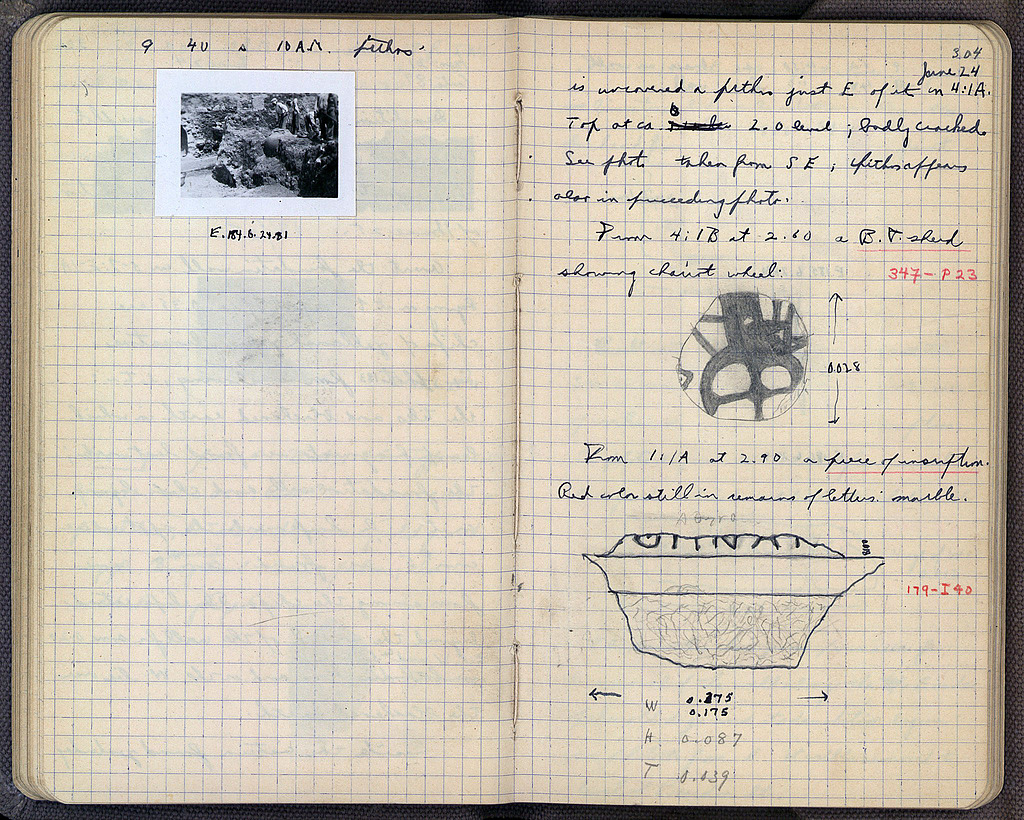 9 40 a 10 A.M. pithos.
E.184.6.24.81
304
June 24
is uncovered a pithos just E of it in 4:1A.
Top at ca. B 2.0 level; badly cracked.
See photo taken from SE; pithos appears
also in preceeding photo.
From 4:1B at 2.60 a B.T. sherd
showing chariot wheel:
347-P23
0.028
From 1:1A at 2.90 a piece of inscription.
Red color still in remains of letters: marble.
179-I40
W 0.275
0.175
H 0.087
T 0.039